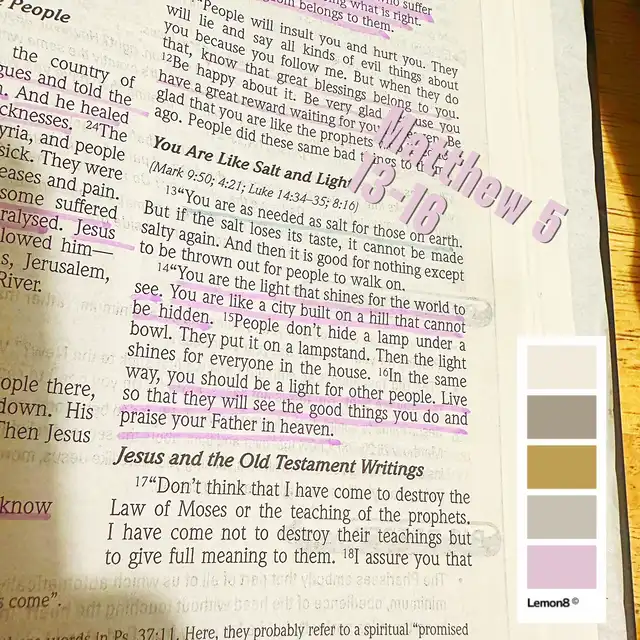 e People
the country of
gues and told the
n. And he healed
cknesses. ²⁴The
yria, and people
sick. They were
eases and pain.
some suffered
ralysed. Jesus
lowed him—
s, Jerusalem,
River.
ople there,
down. His
Then Jesus
know
s come”.
who suffer
ing what is right.
dom belongs to them.
“People will insult you and hurt you. They
will lie and say all kinds of evil things about
you because you follow me. But when they do
that, know that great blessings belong to you.
¹²Be happy about it. Be very glad use you
have a great reward waiting for you en. Be
glad that you are like the prophets
ago. People did these same bad things to
You Are Like Salt and Light
(Mark 9:50; 4:21; Luke 14:34–35; 8:16)
¹³“You are as needed as salt for those on earth.
But if the salt loses its taste, it cannot be made
salty again. And then it is good for nothing except
to be thrown out for people to walk on.
¹⁴“You are the light that shines for the world to
see. You are like a city built on a hill that cannot
be hidden. ¹⁵People don’t hide a lamp under a
bowl. They put it on a lampstand. Then the light
shines for everyone in the house. ¹⁶In the same
way, you should be a light for other people. Live
so that they will see the good things you do and
praise your Father in heaven.
Jesus and the Old Testament Writings
¹⁷“Don’t think that I have come to destroy the
Law of Moses or the teaching of the prophets.
I have come not to destroy their teachings but
to give full meaning to them. ¹⁸I assure you that
words in Ps. 37:11. Here, they probably refer to a spiritual “promised
Matthew 5
13-16
Lemon8 ©